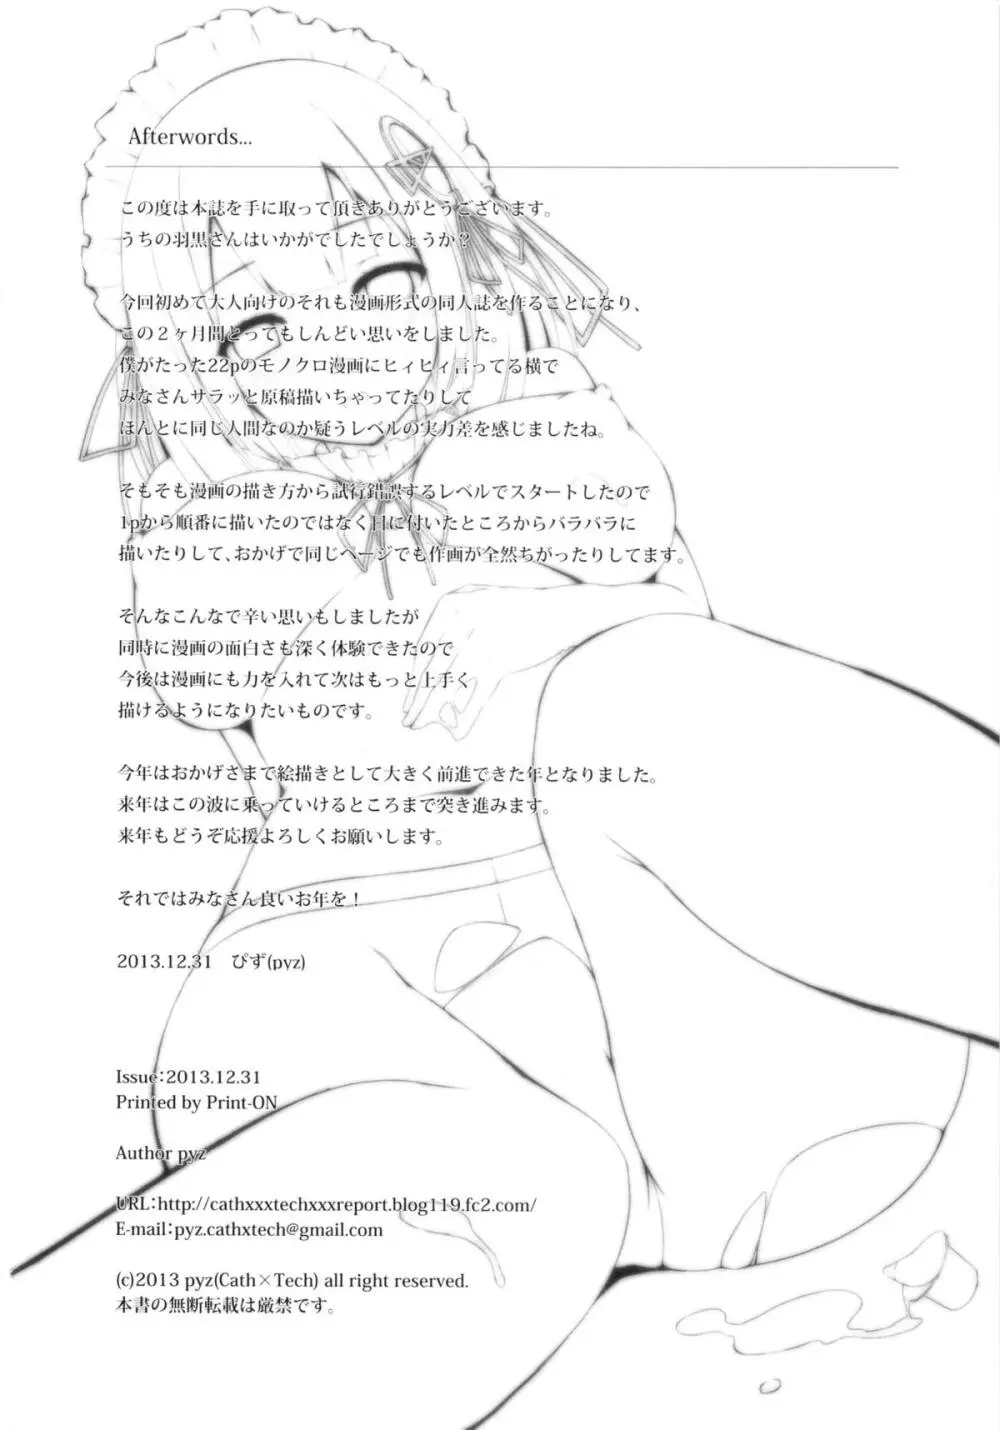 Afterwords...
この度は本誌を手に取って頂きありがとうございます。
うちの羽黒さんはいかがでしたでしょうか？
今回初めて大人向けのそれも漫画形式の同人誌を作ることになり、
この２ヶ月間とってもしんどい思いをしました。
僕がたった22pのモノクロ漫画にヒィヒィ言ってる横で
みなさんサラッと原稿描いちゃってたりして
ほんとに同じ人間なのか疑うレベルの実力差を感じましたね。
そもそも漫画の描き方から試行錯誤するレベルでスタートしたので
1pから順番に描いたのではなく目に付いたところからバラバラに
描いたりして、おかげで同じページでも作画が全然ちがったりしてます。
そんなこんなで辛い思いもしましたが
同時に漫画の面白さも深く体験できたので
今後は漫画にも力を入れて次はもっと上手く
描けるようになりたいものです。
今年はおかげさまで絵描きとして大きく前進できた年となりました。
来年はこの波に乗っていけるところまで突き進みます。
来年もどうぞ応援よろしくお願いします。
それではみなさん良いお年を！
2013.12.31　ぴず(pyz)
Issue:2013.12.31
Printed by Print-ON
Author pyz
URL:http://cathxxxtechxxxreport.blog119.fc2.com/
E-mail:pyz.cathxtech@gmail.com
(c)2013 pyz(Cath×Tech) all right reserved.
本書の無断転載は厳禁です。